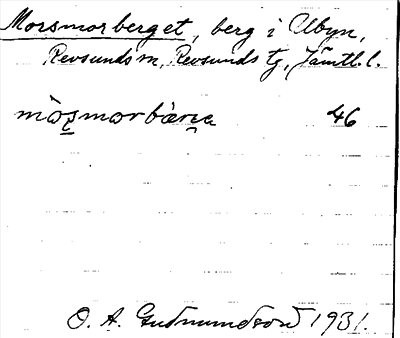 Morsmorberget, berg i Albyn,
Revsunds m, Revsunds tg, Jämtl. l.
46
O. A. Gudmundson 1931.